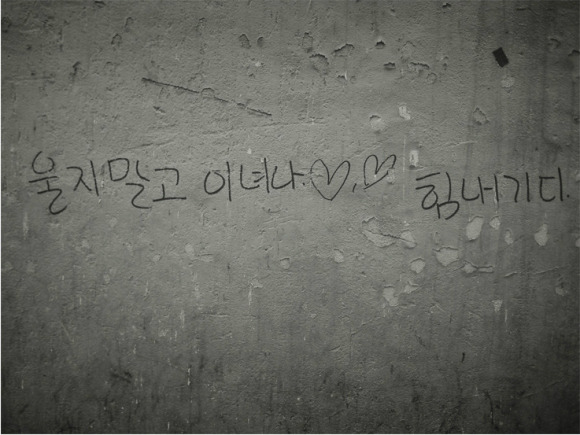 울지말고 이녀나.♡.♡ 힘내기다.